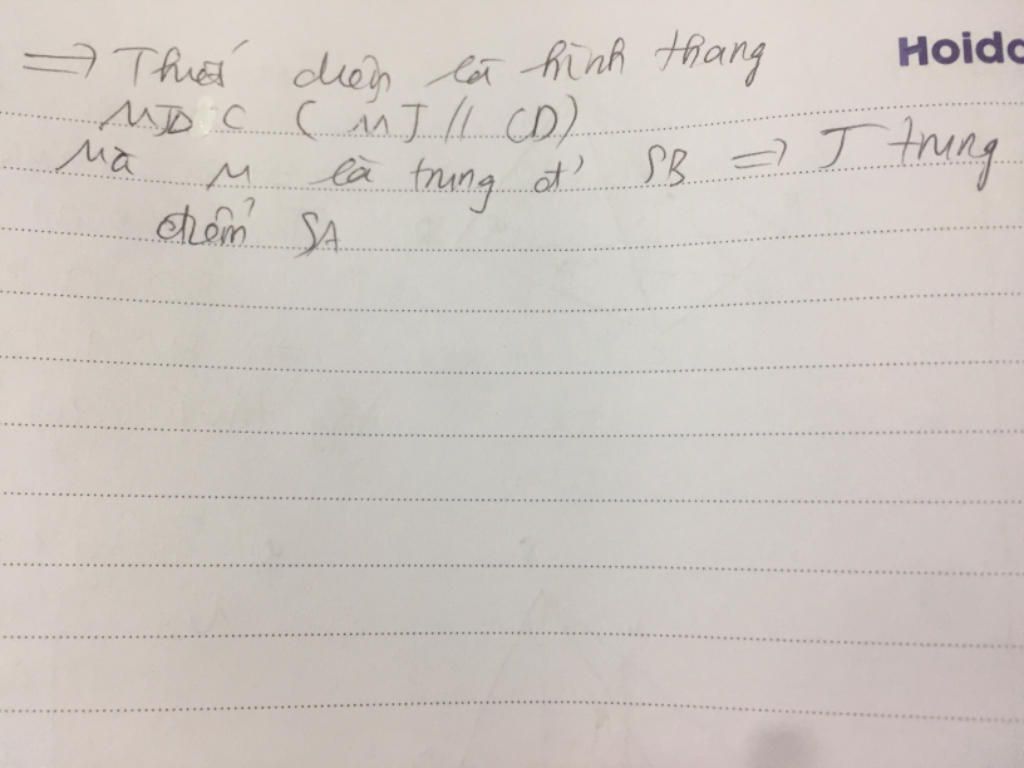 Hoidc
=> Thiết diện là hình thang
MJDC (MJ // CD)
Mà M là trung đ' SB => J trung
điểm SA